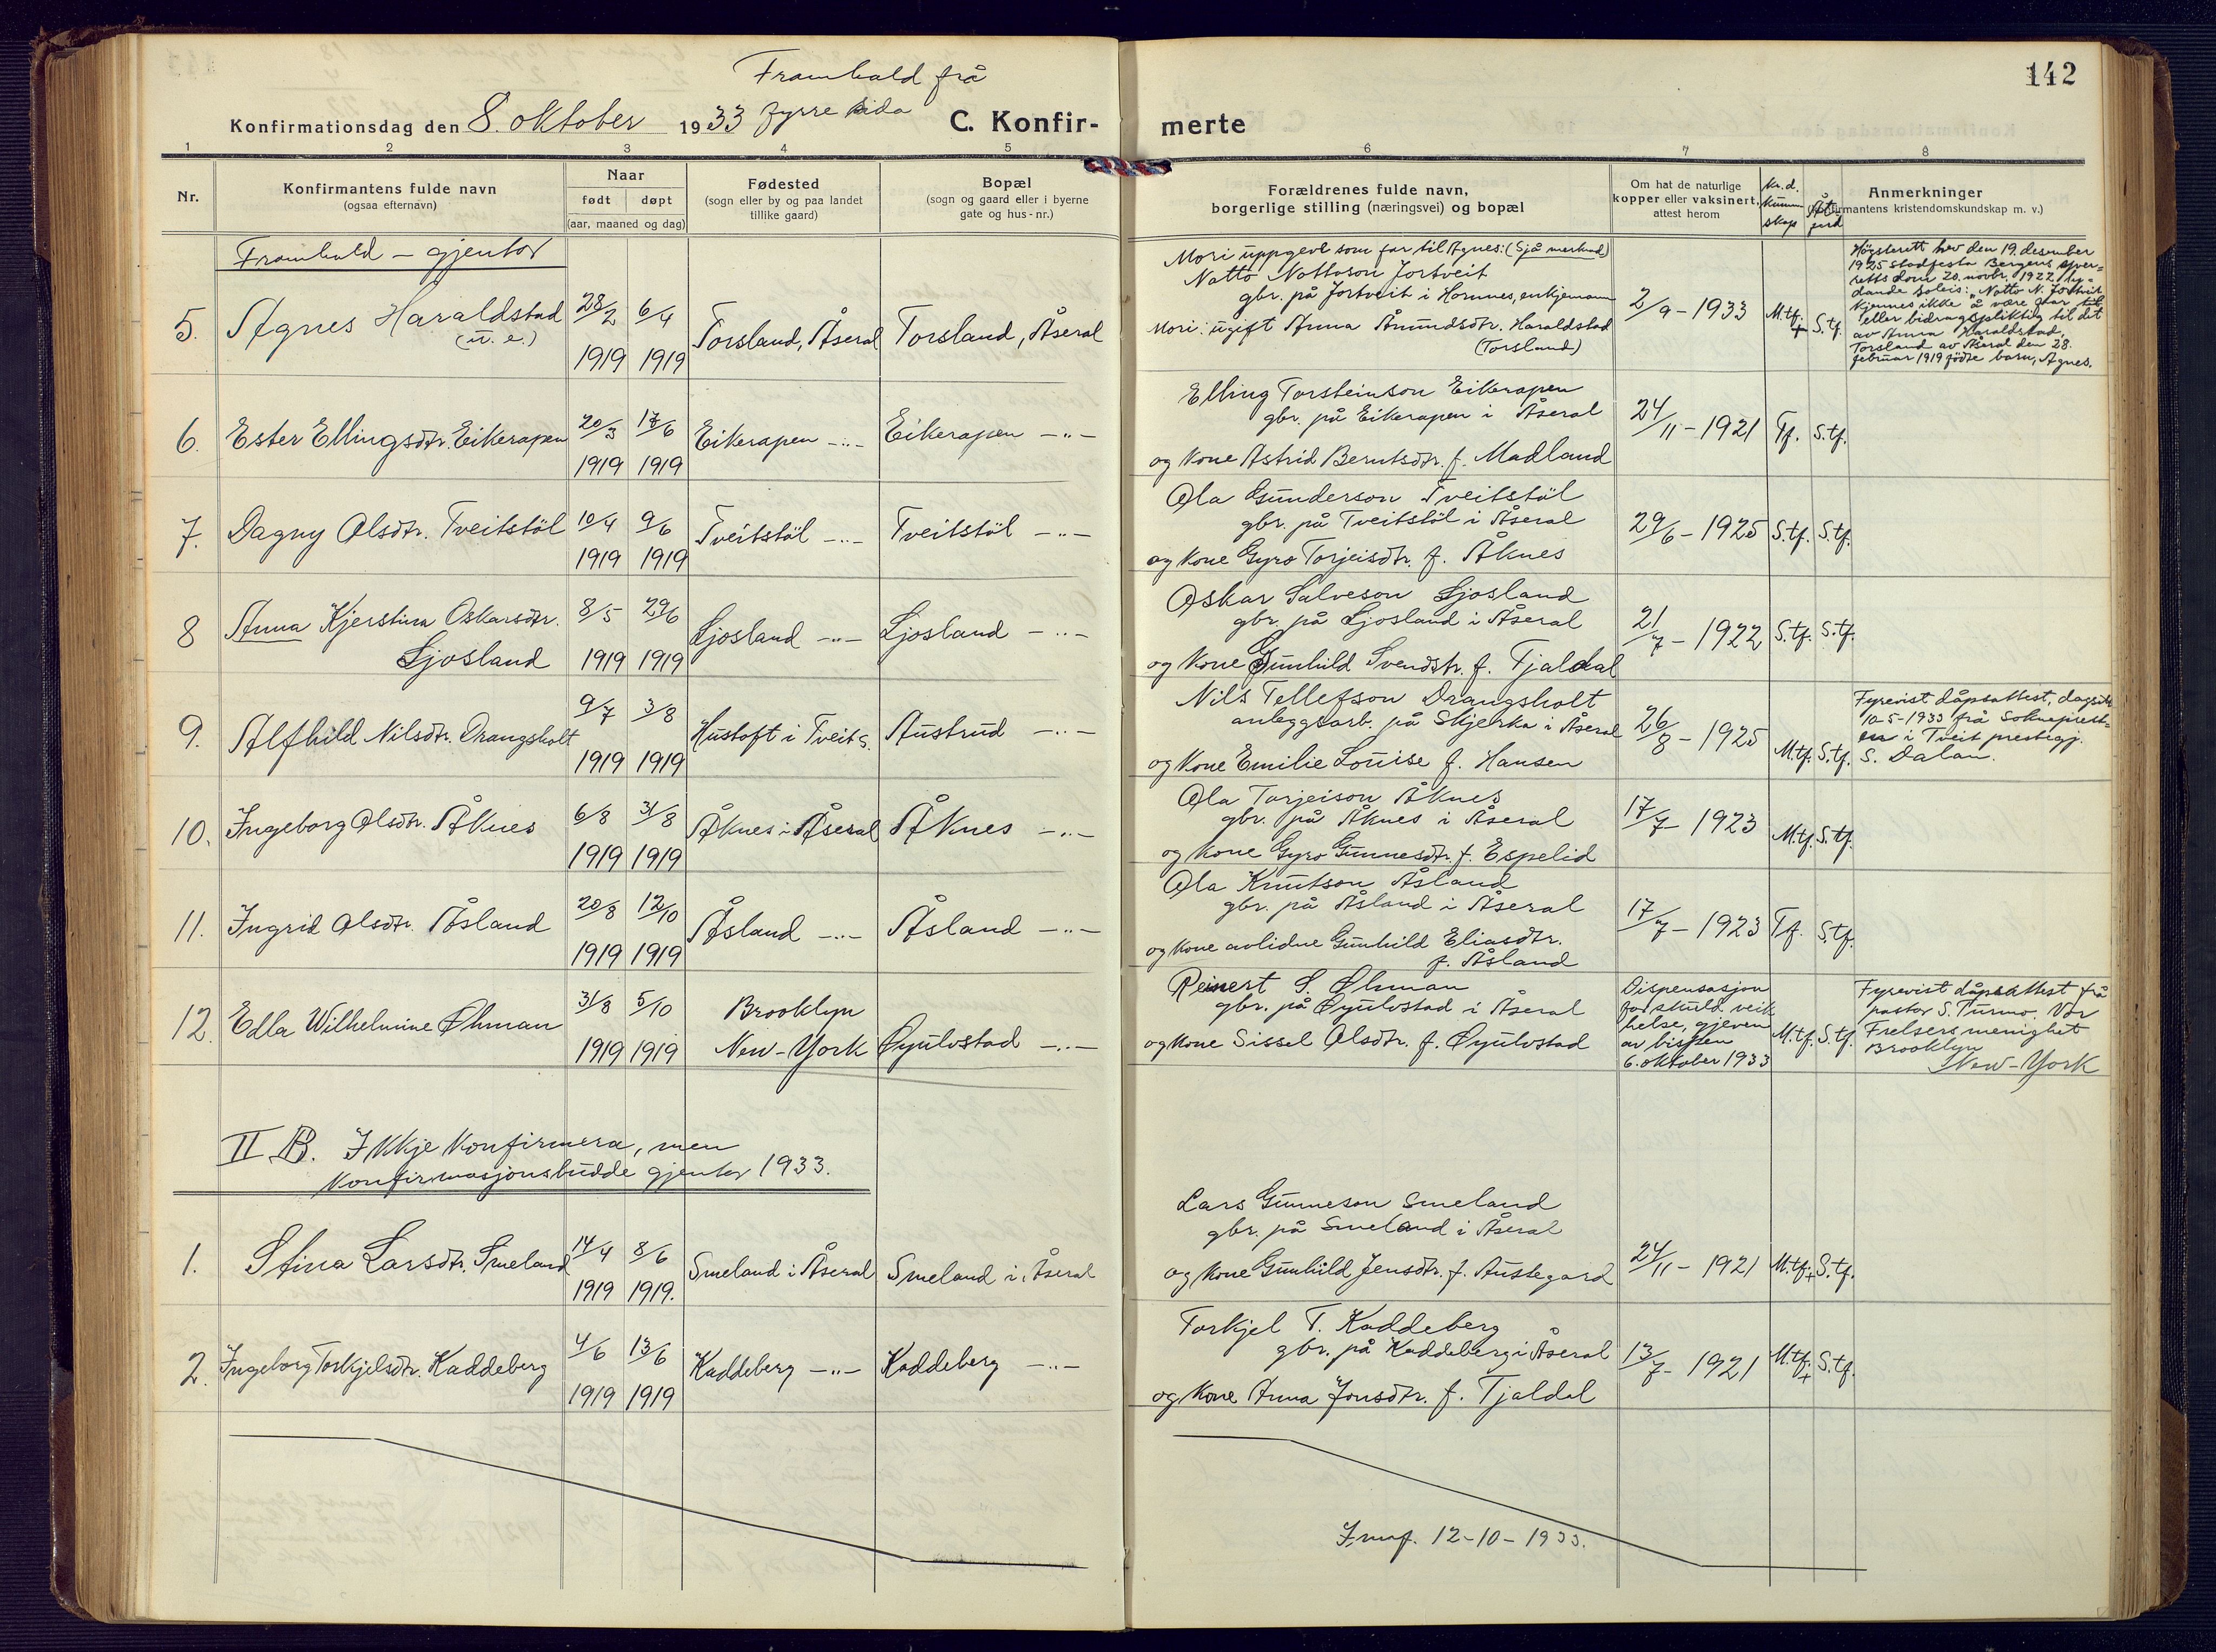 142
Framhald frå
Konfirmationsdag den 8. oktober 1933 fyrre sida C. Konfir-merte
1 2 3 4 5 6 7 8
Nr.
Konfirmantens fulde navn
(ogsaa efternavn)
Naar
født døpt
(aar, maaned og dag)
Fødested
(sogn eller by og paa landet
tillike gaard)
Bopæl
(sogn og gaard eller i byerne
gate og hus-nr.)
Forældrenes fulde navn,
borgerlige stilling (næringsvei) og bopæl
Om hat de naturlige
kopper eller vaksinert,
attest herom
Kr.d.
kunn
skap
Åt
ferd
Anmerkninger
(konfirmantens kristendomskundskap m. v.)
Framhald – gjentor
5. Agnes Haraldstad
(u. e.)
28/2 6/4
1919 1919
Torsland, Åseral
Torsland, Åseral
Mori uppgevt som far til Agnes: (Sjå merknad)
Natto Nottoson Jortveit
gbr. på Jortveit i Hornnes, enkjemann
Mori: ugift Anna Ånundsdtr. Haraldstad
(Torsland)
2/9 - 1933
M.tf.
+
S.tf.
Högsterett hev den 19. desember
1925 stadfesta Bergens over-
retts dom 20. novbr. 1922, ly-
dande soleis: "Notto N. Jortveit
kjennes ikke å være far til
eller bidragspliktig til det
av Anna Haraldstad,
Torsland av Åseral den 28.
februar 1919 födte barn, Agnes.
6. Ester Ellingsdtr. Eikerapen
20/3 17/6
1919 1919
Eikerapen -"-
Eikerapen -"-
Elling Torsteinson Eikerapen
gbr. på Eikerapen i Åseral
og kone Astrid Berntsdtr. f. Madland
24/11 - 1921
Tf.
S.tf.
7. Dagny Olsdtr. Tveitstöl
10/4 9/6
1919 1919
Tveitstöl -"-
Tveitstöl -"-
Ola Gunderson Tveitstöl
gbr. på Tveitstöl i Åseral
og kone Gyro Torjeisdtr. f. Åknes
29/6 - 1925
S.tf.
S.tf.
8 Anna Kjerstina Oskarsdtr.
Ljosland
8/5 29/6
1919 1919
Ljosland -"-
Ljosland -"-
Oskar Salveson Ljosland
gbr. på Ljosland i Åseral
og kone Gunhild Svendstr. f. Tjaldal
21/7 - 1922
S.tf.
S.tf.
9. Alfhild Nilsdtr. Drangsholt
9/7 3/8
1919 1919
Hustoft i Tveit s.
Austrud -"-
Nils Tellefson Drangsholt
anleggsarb. på Skjerka i Åseral
og kone Emilie Louise f. Hansen
26/8 - 1925
M.tf.
S.tf.
Fyrevist dåpsattest, dagsett
10-5-1933 frå Sokneprest-
en i Tveit prestegj.
S. Dalan.
10. Ingeborg Olsdtr. Åknes
6/8 31/8
1919 1919
Åknes i Åseral
Åknes -"-
Ola Torjeison Åknes
gbr. på Åknes i Åseral
og kone Gyro Gunnesdtr. f. Espelid
17/7 - 1923
M.tf.
S.tf.
11. Ingrid Olsdtr. Åsland
20/8 12/10
1919 1919
Åsland -"-
Åsland -"-
Ola Knutson Åsland
gbr. på Åsland i Åseral
og kone avlidne Gunhild Eliasdtr.
f. Åsland
17/7 - 1923
Tf.
S.tf.
12. Edla Wilhelmine Øhman
31/8 5/10
1919 1919
Brooklyn
New-York
Øyulvstad -"-
Reinert S. Øhman
gbr. på Øyulvstad i Åseral
og kone Sissel Olsdtr. f. Øyulvstad
Dispensasjon
for skuld veik
helse, gjeven
av bispen
6. oktober 1933
M.tf.
S.tf.
Fyrevist dåpsattest frå
pastor S. Turmo. Vår
Frelsers menighet
Brooklyn
New-York
II B. Ikkje konfirmera, men
konfirmasjonsbudde gjentor 1933.
1. Stina Larsdtr. Smeland
14/4 8/6
1919 1919.
Smeland i Åseral
Smeland i Åseral
Lars Gunneson Smeland
gbr. på Smeland i Åseral
og kone Gunhild Jensdtr. f. Austegard
24/11 - 1921
M.tf.
+
S.tf.
2. Ingeborg Torkjelsdtr. Kaddeberg
4/6 13/6
1919 1919
Kaddeberg -"-
Kaddeberg -"-
Torkjel T. Kaddeberg
gbr. på Kaddeberg i Åseral
og kone Anna Jonsdtr. f. Tjaldal
13/7 - 1921
M.tf.
+
S.tf.
12-10-1933.